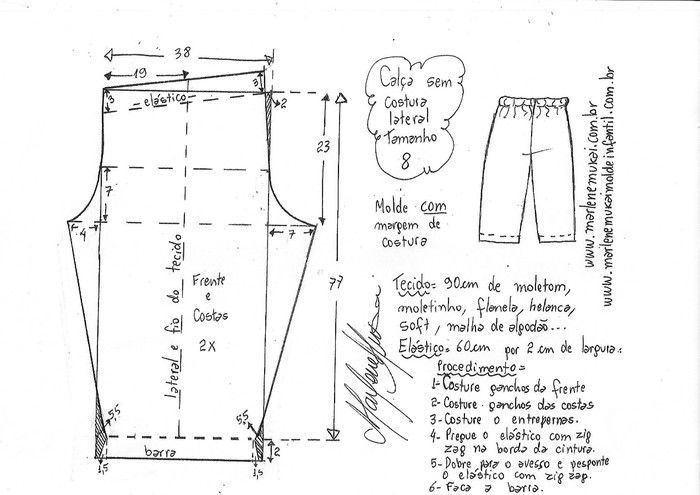 38
19
3
3
elástico
2
23
7
4
7
77
lateral e fio do tecido
Frente
e
Costas
2x
5,5
5,5
barra
2
1,5
1,5
Calça sem
costura
lateral
Tamanho
8
Molde com
margem de
costura
www.marlenemukai.com.br
www.marlenemukaimoldeinfantil.com.br
Tecido= 90cm de moletom,
moletinho, flanela, helanca,
soft, malha de algodão...
Elástico= 60cm por 2 cm de largura.
Procedimento=
1- Costure ganchos da frente
2- Costure ganchos das costas
3- Costure o entrepernas.
4- Pregue o elástico com zig
zag na borda da cintura.
5- Dobre para o avesso e pesponte
o elástico com zig zag.
6- Faça a barra.